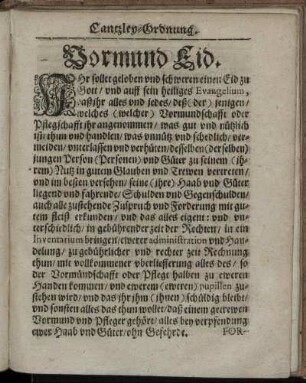 Cantzley-Ordnung.
Vormund Eid.
IHr sollet geloben vnd schweren einen Eid zu
Gott / vnd auff sein heiliges Evangelium,
daß ihr alles vnd jedes / deß (der) jenigen /
welches (welcher) Vormundschafft oder
Pflegschafft ihr angenommen / was gut vnd nützlich
ist / thun vnd handlen / was vnnütz vnd schedlich / ver-
meiden / vnterlassen vnd verhüten / desselben (der selben)
jungen Person (Personen) vnd Güter zu seinem (ih-
rem) Nutz in gutem Glauben vnd Trewen vertreten /
vnd im besten versehen / seine (ihre) Haab vnd Güter
ligend vnd fahrende / Schulden vnd Gegenschulden /
auch alle zustehende Zuspruch vnd Forderung mit gu-
tem fleiß erkunden / vnd das alles eigent: vnd vn-
terschiedlich / in gebührender zeit der Rechten / in ein
Inventarium bringen / ewerer administration vnd Han-
delung / zu gebührlicher vnd rechter zeit Rechnung
thun / mit vollkommener vberlieferung alles des / so
der Vormündschafft oder Pflege halben zu eweren
Handen kommen / vnd ewerem (ewren) pupillen zu-
stehen wird / vnd das ihr ihm (ihnen) schüldig bleibt /
vnd sonsten alles das thun wollet / daß einem getrewen
Vormund vnd Pfleger gehört / alles bey verpfendung
ewer Haab vnd Güter / ohn Gefehrde.
FOR-